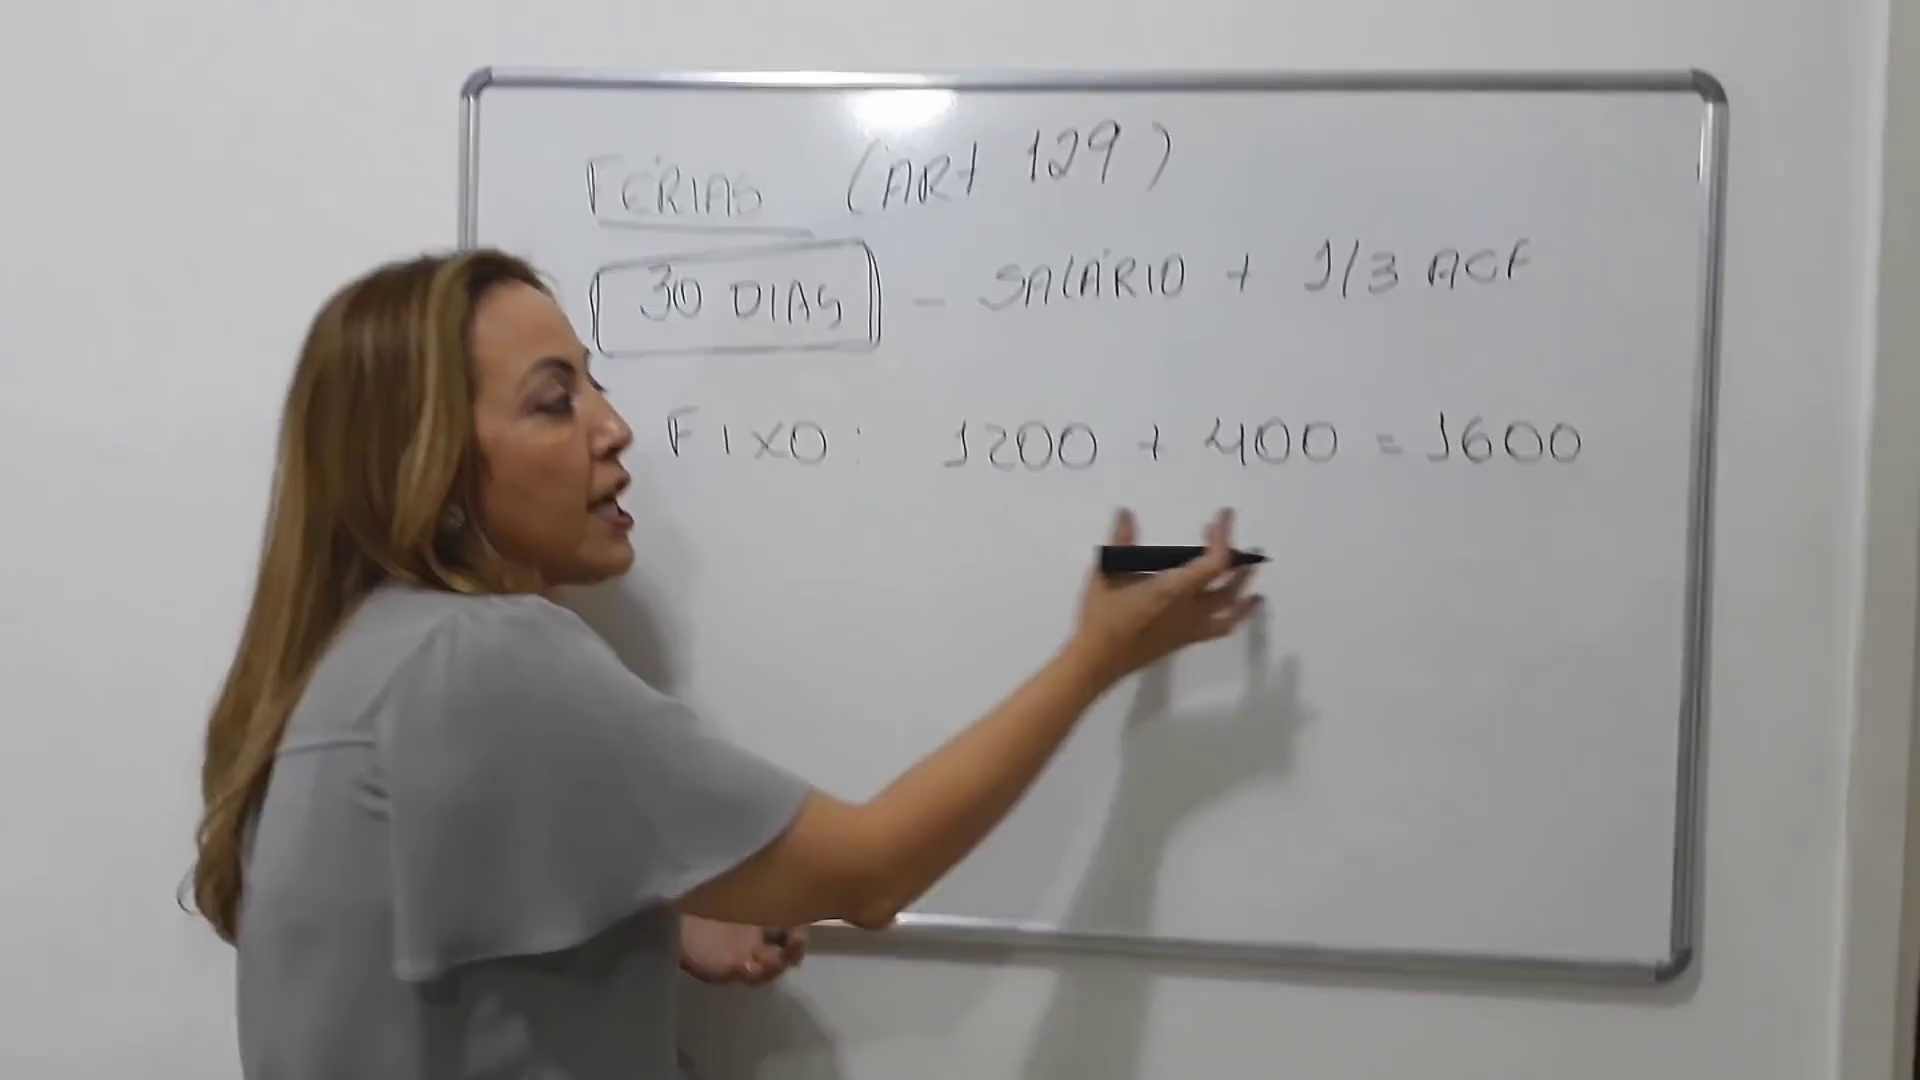 FÉRIAS (ART 129)
30 DIAS - SALÁRIO + 1/3 ACF
FIXO: 1200 + 400 = 1600